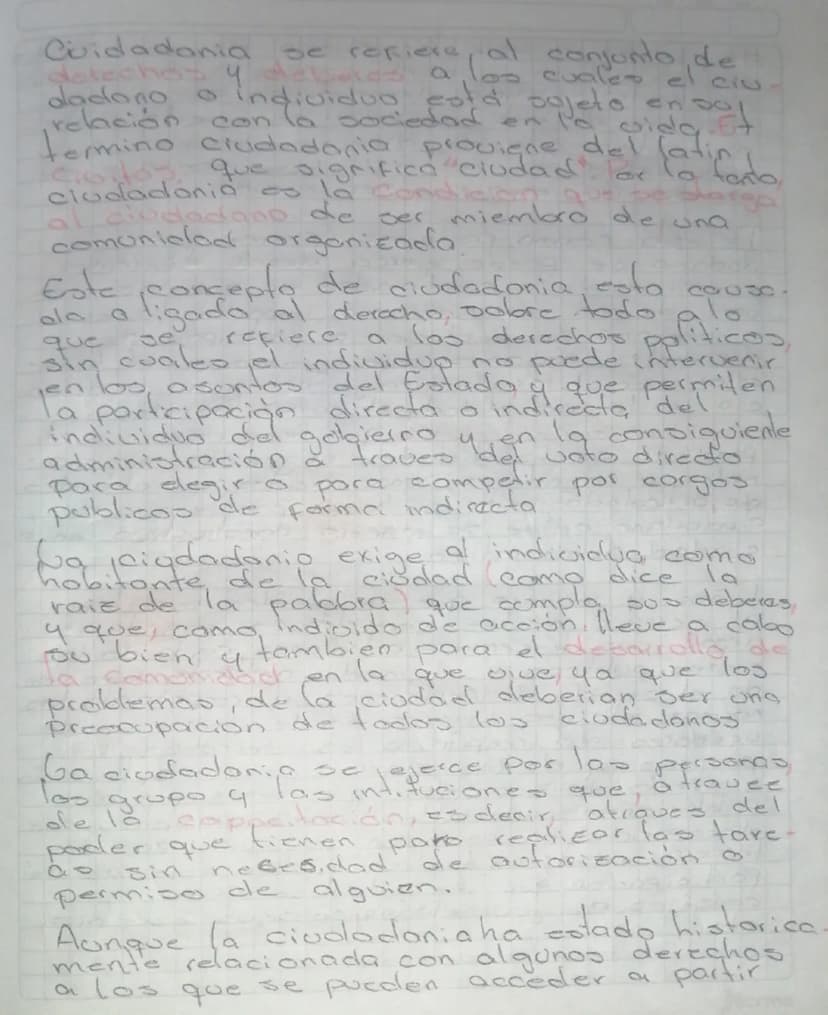 Cuidadania se refiere, al conjunto de
derechos y deberes a los cuales el ciu-
dadano o individuo está sojeto en sol
relación con la sociedad en la vida. El
termino ciudadania proviene del latin
civitas, que significa "ciudad". Por lo tanto,
ciudadania es la condicion que se otorga
al ciudadano de ser miembro de una
comunidad organizada.
Este concepto de ciudadania esta
ligado al derecho, sobre todo a lo
que se refiere a los derechos politicos,
sin cuales el individuo no puede intervenir
en los asontos del Estado y que permiten
la participación directa o indirecta del
individuo del gobierno y en la consiguiente
administración a traves del voto directo
para elegir o para competir por cargos
publicos de forma indiracta
La ciudadania exige al individuo, como
habitante de la ciudad (como dice la
raiz de la palabra) que compla sus deberes,
y que, como individo de acción, lleve a cabo
su bien y tambien para el desarrollo de
la comonidad en la que vive, ya que los
problemas, de la ciudad deberian ser una
preocupacion de todos los ciudadanos
La ciudadania se ejerce por las personas,
los grupo y las intituciones que, a travee
de la es decir, atraves del
poder que tienen para realizar las tare-
as sin necesidad de autorización o
permiso de alguien.
Aunque la ciudadania ha estado historica-
mente relacionada con algunos derechos
a los que se pueden acceder a partir